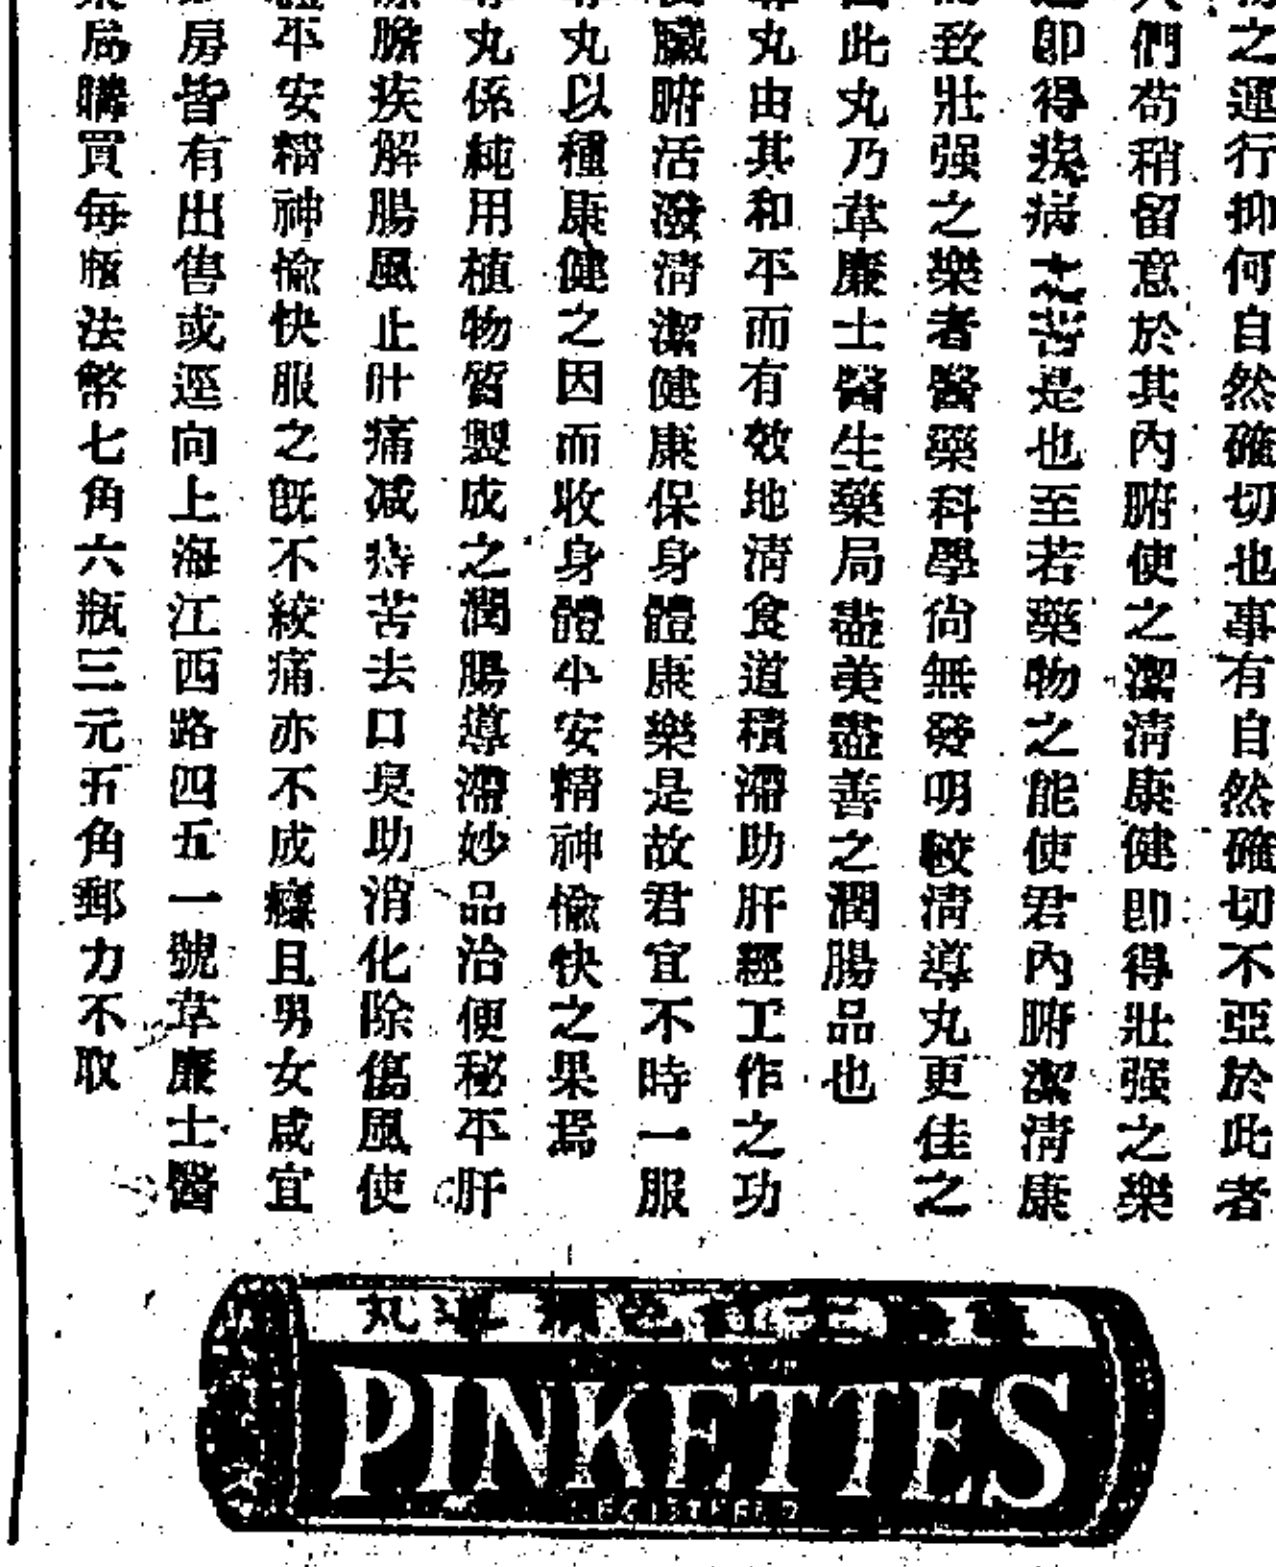 之運行抑何自然確切也事有自然確切不亞於此者
們苟稍留意於其內腑使之潔清康健即得壯强之樂
即得疾病之苦是也至若藥物之能使君內腑潔清康
致壯强之樂者醫藥科學尙無發明較清導丸更佳之
此丸乃韋廉士醫生藥局盡美盡善之潤腸品也
丸由其和平而有效地清食道積滯助肝經工作之功
臟腑活潑清潔健康保身體康樂是故君宜不時一服
丸以種康健之因而收身體平安精神愉快之果焉
丸係純用植物質製成之潤腸導滯妙品治便秘平肝
膽疾解腸風止肚痛減痔苦去口臭助消化除傷風使
平安精神愉快服之旣不絞痛亦不成癮且男女咸宜
房皆有出售或逕向上海江西路四五一號韋廉士醫
局購買每瓶法幣七角六瓶三元五角郵力不取
PINKETTES